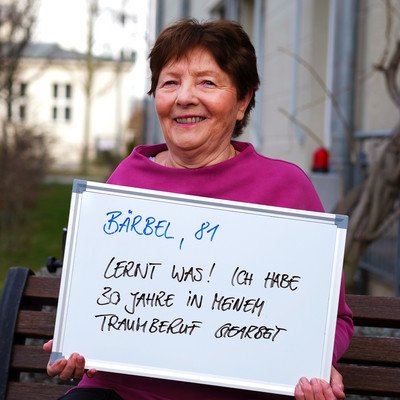 BÄRBEL, 81
LERNT WAS! ICH HABE
30 JAHRE IN MEINEM
TRAUMBERUF GEARBEIT